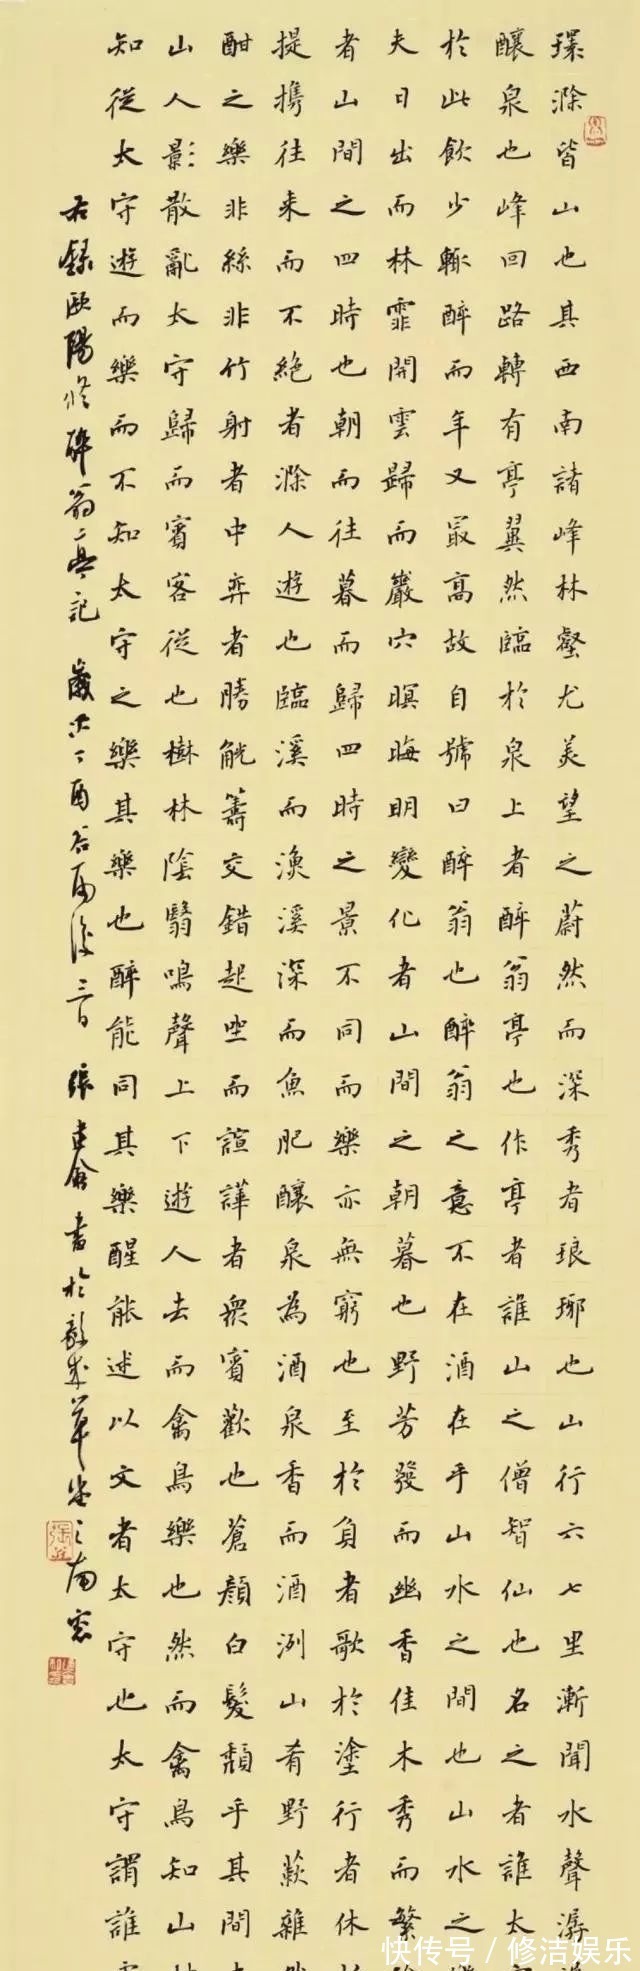 環滁皆山也其西南諸峰林壑尤美望之蔚然而深秀者琅琊也山行六七里漸聞水聲潺
釀泉也峰回路轉有亭翼然臨於泉上者醉翁亭也作亭者誰山之僧智仙也名之者誰太
於此飲少輒醉而年又冣高故自號曰醉翁也醉翁之意不在酒在乎山水之間也山水之
夫日出而林霏開雲歸而巖穴暝晦明變化者山間之朝暮也野芳發而幽香佳木秀而繁
者山間之四時也朝而往暮而歸四時之景不同而樂亦無窮也至於負者歌於塗行者休
提攜往來而不絕者滁人遊也臨溪而漁溪深而魚肥釀泉為酒泉香而酒洌山肴野蔌雜
酣之樂非絲非竹射者中弈者勝觥籌交錯起坐而諠譁者衆賓歡也蒼顏白髮頹乎其間
山人影散亂太守歸而賓客從也樹林陰翳鳴聲上下遊人去而禽鳥樂也然而禽鳥知山
知從太守遊而樂而不知太守之樂其樂也醉能同其樂醒能述以文者太守也太守謂誰
右錄歐陽修醉翁亭記 歲次丁酉谷雨後三日 張 書於 草堂之南窓
快传号／修洁娱乐